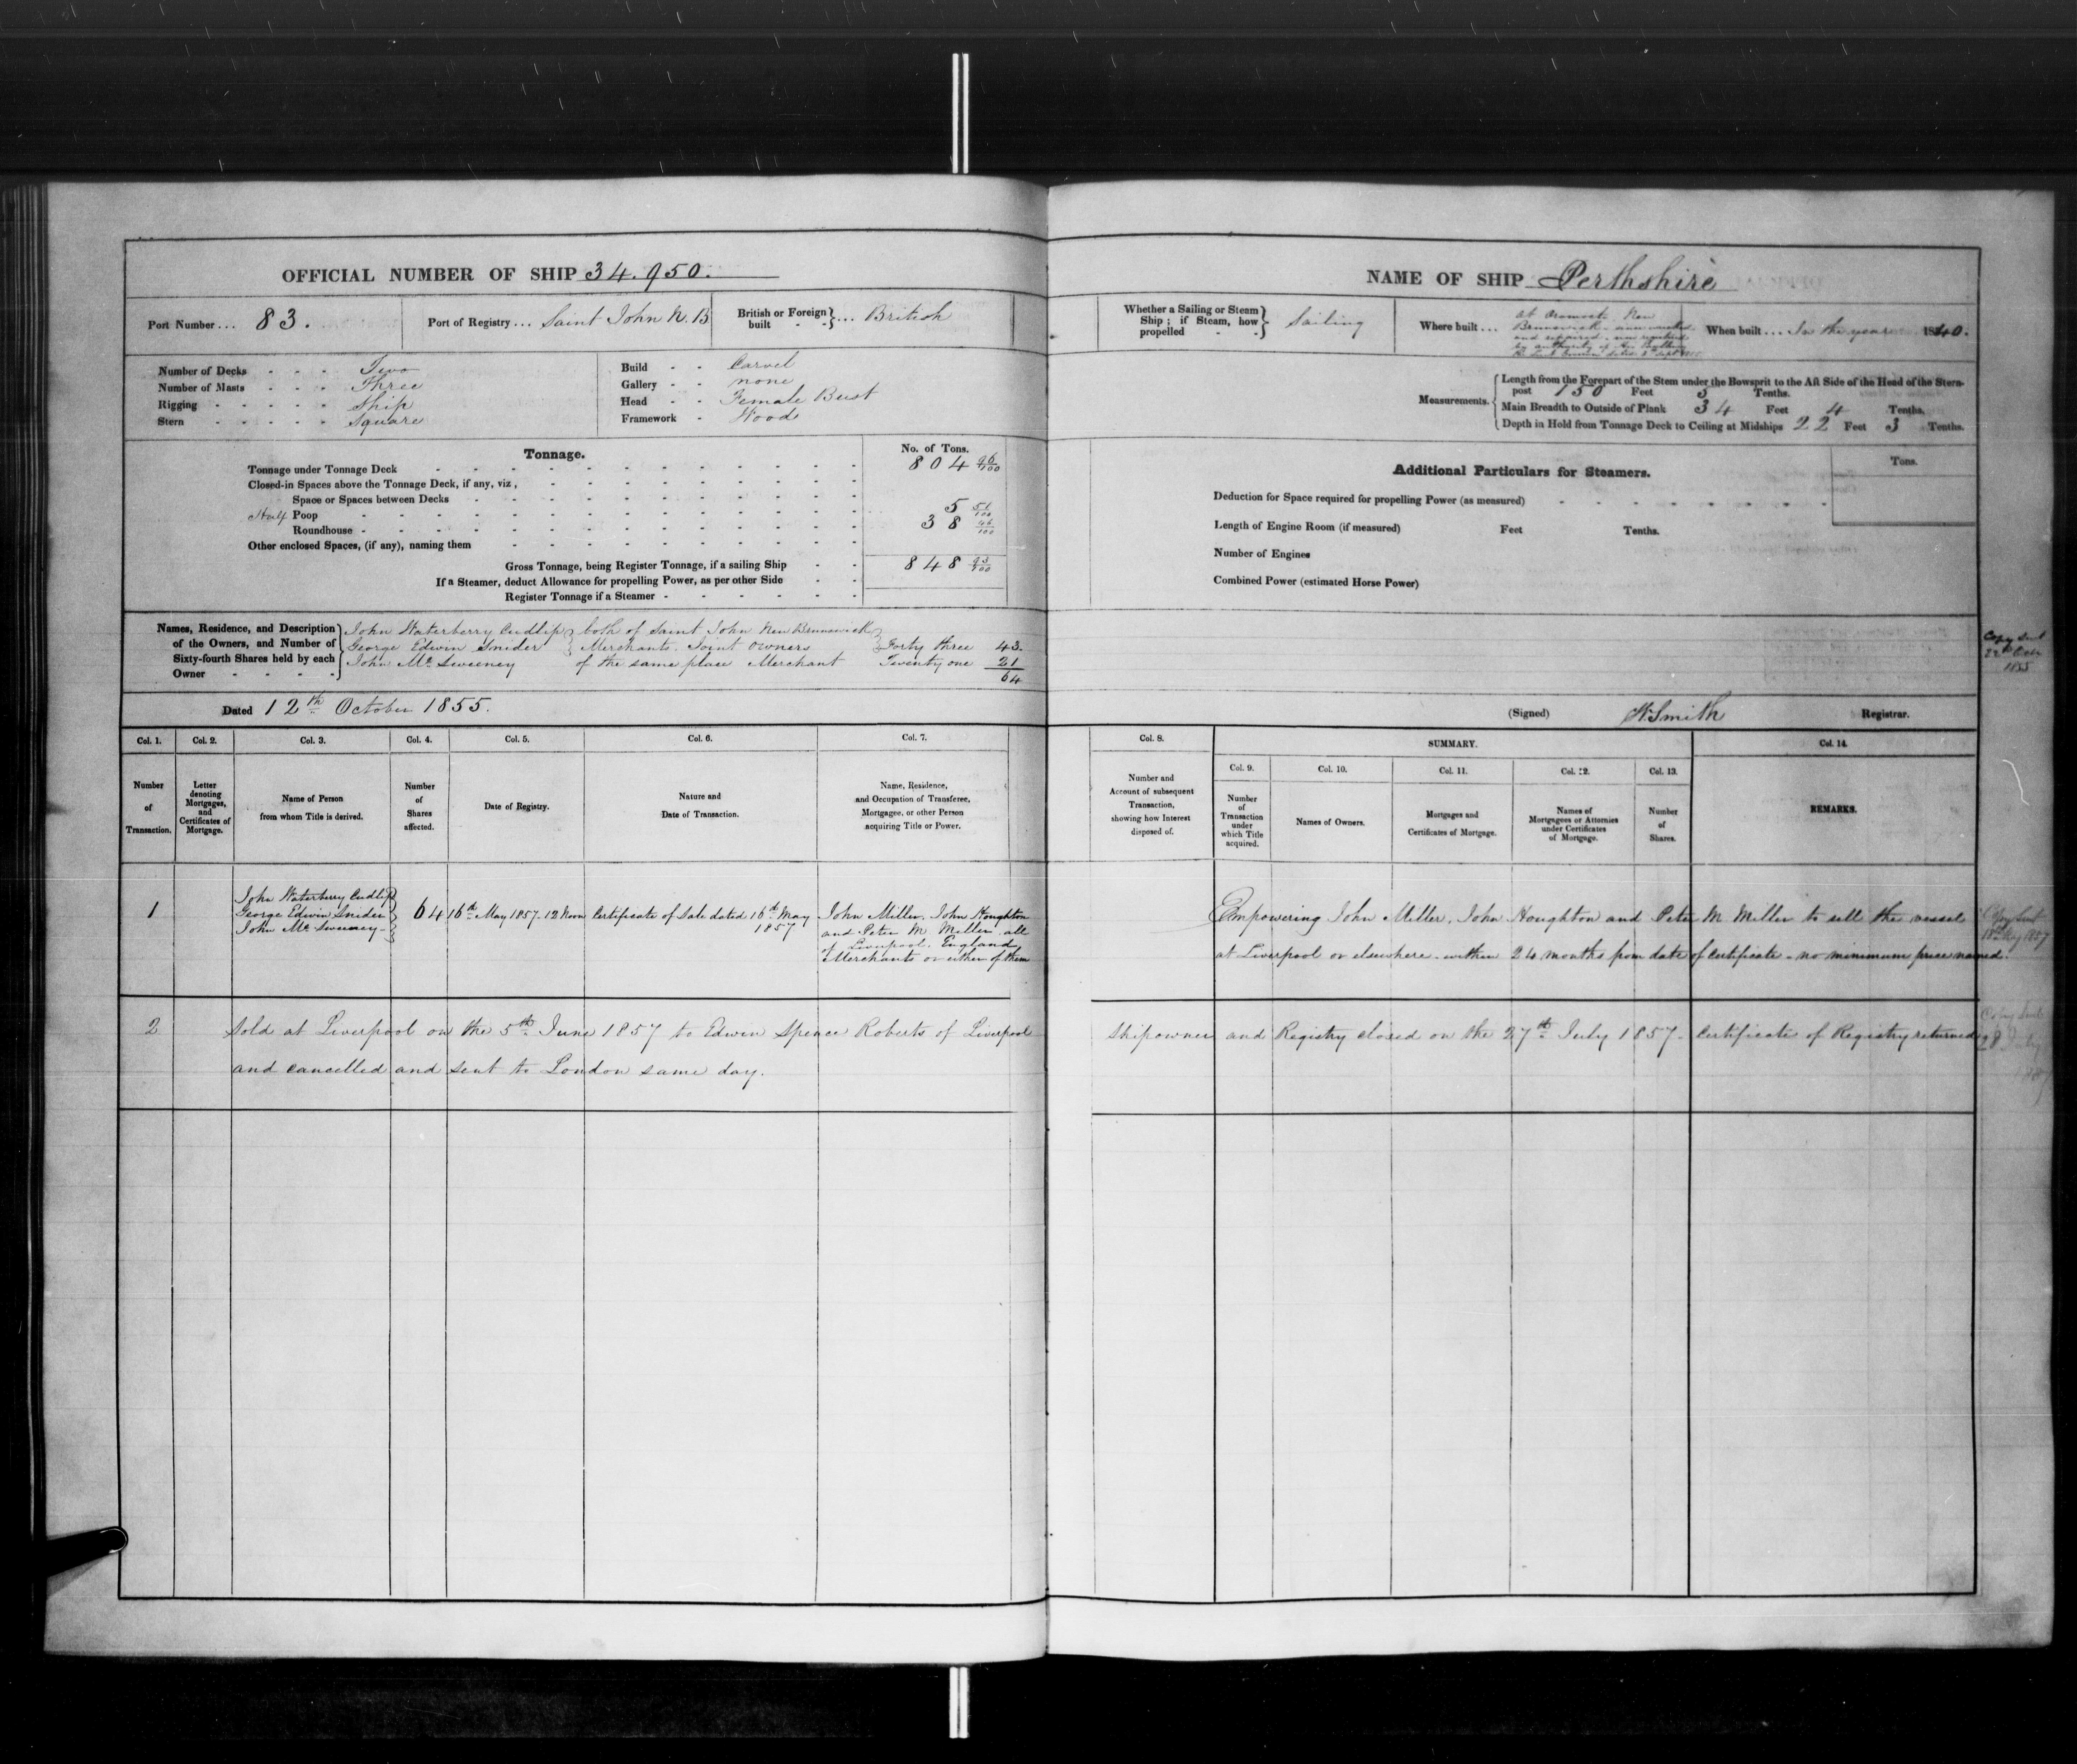 OFFICIAL NUMBER OF SHIP 34.950.
Port Number ... 83.
Port of Registry ... Saint John N.B
British or Foreign built - - } ... British
Number of Decks - - - Two
Number of Masts - - - Three
Rigging - - - - - Ship
Stern - - - - - Square
Build - - Carvel
Gallery - - none
Head - - Female Bust
Framework - Wood
Tonnage.
No. of Tons.
Tonnage under Tonnage Deck 804 96/100
Closed-in Spaces above the Tonnage Deck, if any, viz,
Space or Spaces between Decks
Half Poop 5 51/100
Roundhouse - 38 46/100
Other enclosed Spaces, (if any), naming them
Gross Tonnage, being Register Tonnage, if a sailing Ship 848 93/100
If a Steamer, deduct Allowance for propelling Power, as per other Side
Register Tonnage if a Steamer -
Names, Residence, and Description of the Owners, and Number of Sixty-fourth Shares held by each Owner
John Waterberry Cudlip } both of Saint John New Brunswick }
George Edwin Snider } Merchants. Joint Owners } Forty three 43.
John Mc Sweeney of the same place Merchant Twenty one 21
64
Dated 12th October 1855.
Col. 1. Col. 2. Col. 3. Col. 4. Col. 5. Col. 6. Col. 7.
Number of Transaction.
Letter denoting Mortgages, and Certificates of Mortgage.
Name of Person from whom Title is derived.
Number of Shares affected.
Date of Registry.
Nature and Date of Transaction.
Name, Residence, and Occupation of Transferee, Mortgagee, or other Person acquiring Title or Power.
1
John Waterberry Cudlip
George Edwin Snider
John Mc Sweeney
64
16th May 1857. 12 Noon
Certificate of Sale dated 16th May
1857
John Miller. John Houghton
and Peter M Miller all
of Liverpool. England
Merchants or either of them
2
Sold at Liverpool on the 5th June 1857 to Edwin Spence Roberts of Liverpool
and cancelled and sent to London same day.
NAME OF SHIP Perthshire
Whether a Sailing or Steam Ship; if Steam, how propelled - - } Sailing
Where built ... at Oromocto New
Brunswick
and repaired
When built ... In the year 1840.
Measurements.
Length from the Forepart of the Stem under the Bowsprit to the Aft Side of the Head of the Stern-
post 150 Feet 3 Tenths.
Main Breadth to Outside of Plank 34 Feet 4 Tenths.
Depth in Hold from Tonnage Deck to Ceiling at Midships 22 Feet 3 Tenths.
Additional Particulars for Steamers.
Tons.
Deduction for Space required for propelling Power (as measured)
Length of Engine Room (if measured) Feet Tenths.
Number of Engines
Combined Power (estimated Horse Power)
Copy sent
22nd Octr
1855
(Signed) W Smith Registrar.
Col. 8. SUMMARY. Col. 14.
Col. 9. Col. 10. Col. 11. Col. 12. Col. 13.
Number and Account of subsequent Transaction, showing how Interest disposed of.
Number of Transaction under which Title acquired.
Names of Owners.
Mortgages and Certificates of Mortgage.
Names of Mortgagees or Attornies under Certificates of Mortgage.
Number of Shares.
REMARKS.
Empowering John Miller. John Houghton and Peter M Miller to sell the vessel
at Liverpool or elsewhere. within 24 months from date of Certificate - no minimum price named.
Copy Sent
18th May 1857
Shipowner and Registry closed on the 27th July 1857 - Certificate of Registry returned
Copy Sent
28 July
1857